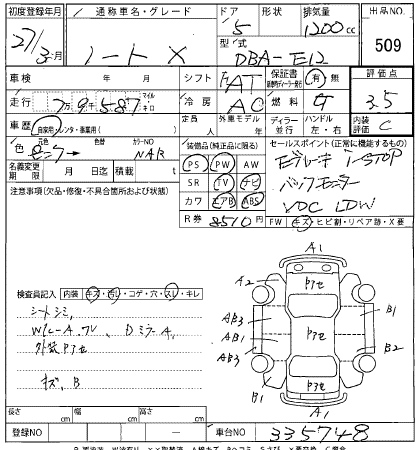 初度登録年月 通称車名・グレード ドア 形状 排気量 出品NO.
27/3月 ノート X 5 1200cc 509
型式 DBA-E12
車検 年 月 シフト FAT 保証書 有 無 評価点
走行 7万9千587 マイル キロ 冷房 AC 燃料 G 3.5
車歴 自家用・レンタ・事業用( ) 定員 人 外車モデル 年 ディーラー 並行 ハンドル 左・右 内装評価 C
色 元色 色替 カラーNO NAR
名義変更期限 月 日迄 積載量 t
装備品(純正品に限る) セールスポイント(正常に機能するもの)
PS PW AW
SR TV ナビ
カワ エアB ABS
R券 8510円
エマブレーキ I-STOP
バックモニター
VDC LDW
FW キズ・ヒビ割・リペア跡・X要
注意事項(欠品・修復・不具合箇所および状態)
検査員記入 内装 キズ・汚レ・コゲ・穴・スレ・キレ
シートシミ,
W/L-A, ワレ, DミラーA,
外装Pアセ
キズ, B
A1
A2 Pアセ
AB3 B1
AB3 B2
B1 Pアセ
A1
長さ cm 幅 cm 高さ cm
登録NO 車台NO 335748